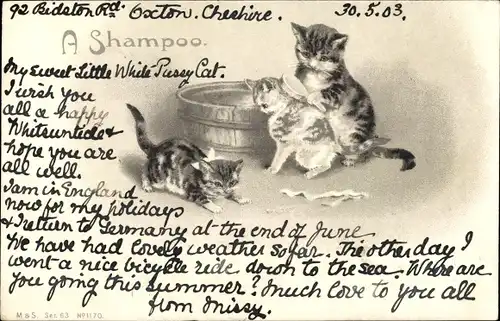 92 Bidston Rd. Oxton, Cheshire. 30.5.03.
A Shampoo.
My sweet Little White Pussy Cat.
I wish you
all a happy
Whitsuntide &
hope you are
all well.
I am in England
now for my holidays
& I return to Germany at the end of June
We have had lovely weather so far. The other day I
went a nice bicycle ride down to the sea. Where are
you going this summer? Much love to you all
from Missy.
M & S. Ser. 63 No 1170.